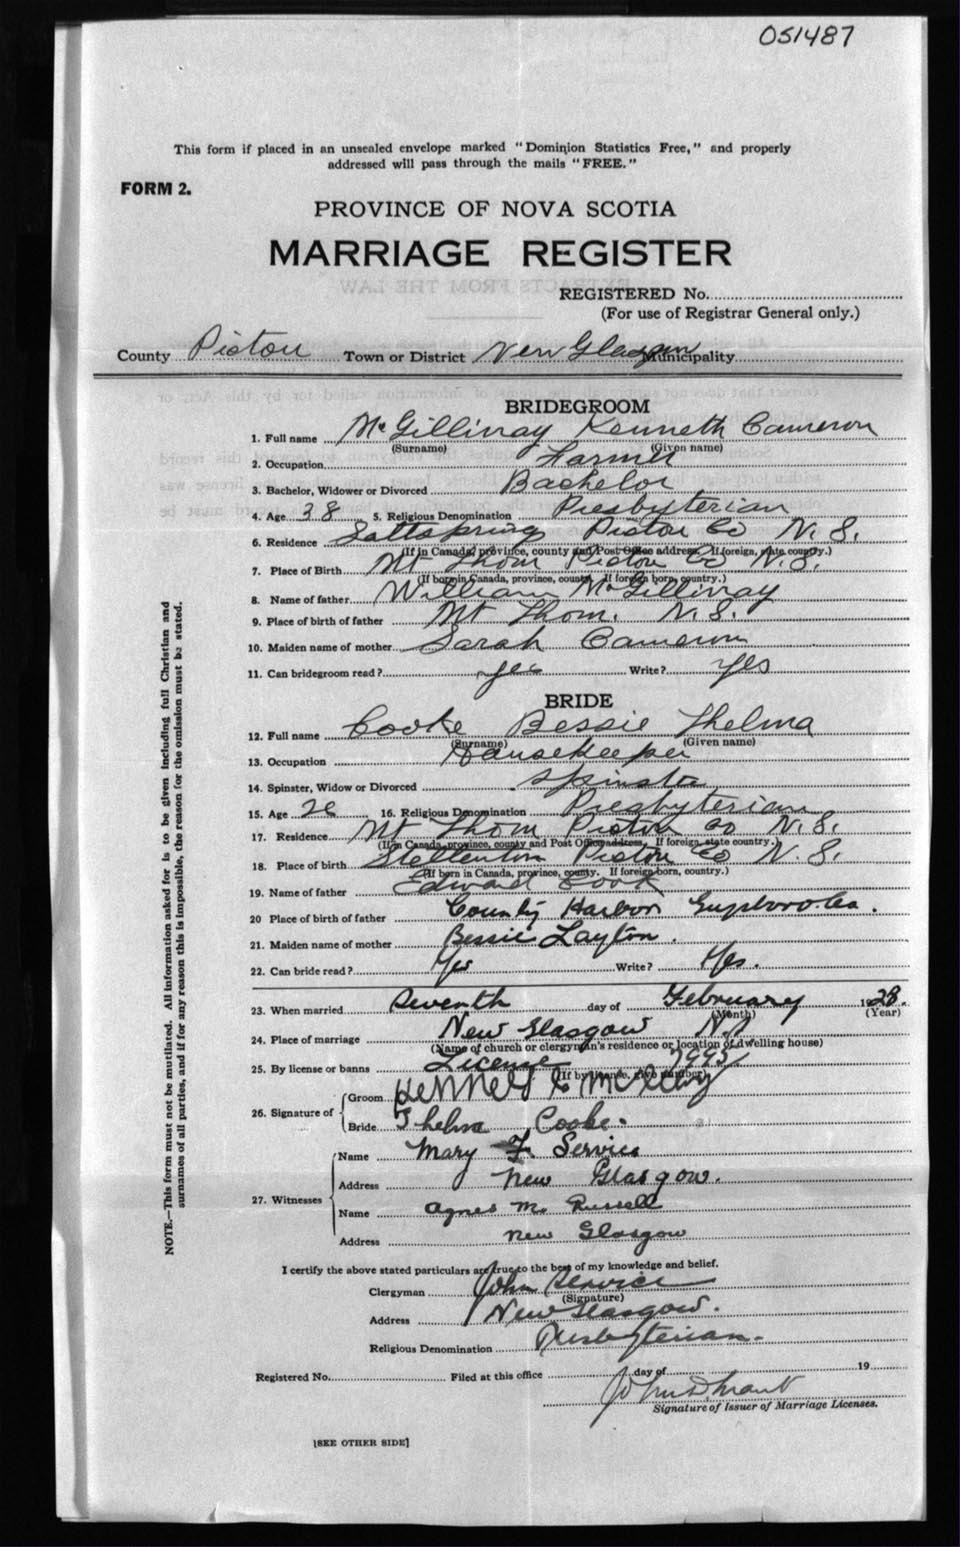 051487
This form if placed in an unsealed envelope marked "Dominion Statistics Free," and properly
addressed will pass through the mails "FREE."
FORM 2.
PROVINCE OF NOVA SCOTIA
MARRIAGE REGISTER
REGISTERED No.
(For use of Registrar General only.)
County Pictou Town or District New Glasgow Municipality
BRIDEGROOM
1. Full name McGillivray Kenneth Cameron
(Surname) (Given name)
2. Occupation Farmer
3. Bachelor, Widower or Divorced Bachelor
4. Age 38 5. Religious Denomination Presbyterian
6. Residence Saltsprings Pictou Co N. S.
(If in Canada, province, county and Post Office address. If foreign, state country.)
7. Place of Birth Mt Thom Pictou Co N. S.
(If born in Canada, province, county. If foreign born, country.)
8. Name of father William McGillivray
9. Place of birth of father Mt Thom. N. S.
10. Maiden name of mother Sarah Cameron
11. Can bridegroom read? yes Write? yes
BRIDE
12. Full name Cooke Bessie Thelma
(Surname) (Given name)
13. Occupation Housekeeper
14. Spinster, Widow or Divorced Spinster
15. Age 16. Religious Denomination Presbyterian
17. Residence Mt Thom Pictou Co N. S.
(If in Canada, province, county and Post Office address. If foreign, state country.)
18. Place of birth Stellerton Pictou Co N. S.
(If born in Canada, province, county. If foreign born, country.)
19. Name of father Edward Cook
20 Place of birth of father County Harbor
21. Maiden name of mother Bessie Layton.
22. Can bride read? Yes Write? Yes.
23. When married Seventh day of February 1928.
(Month) (Year)
24. Place of marriage New Glasgow N.S
(Name of church or clergyman's residence or location of dwelling house)
25. By license or banns License
(If by license, give number)
26. Signature of
Groom Kenneth C
Bride Thelma Cooke.
27. Witnesses
Name Mary F. Service
Address New Glasgow.
Name Agnes M. Russell
Address New Glasgow
I certify the above stated particulars are true to the best of my knowledge and belief.
Clergyman John Service
(Signature)
Address New Glasgow.
Religious Denomination Presbyterian.
Registered No. Filed at this office day of 19
John D. Grant
Signature of Issuer of Marriage Licenses.
[SEE OTHER SIDE]
NOTE.—This form must not be mutilated. All information asked for is to be given including full Christian and
surnames of all parties, and if for any reason this is impossible, the reason for the omission must be stated.